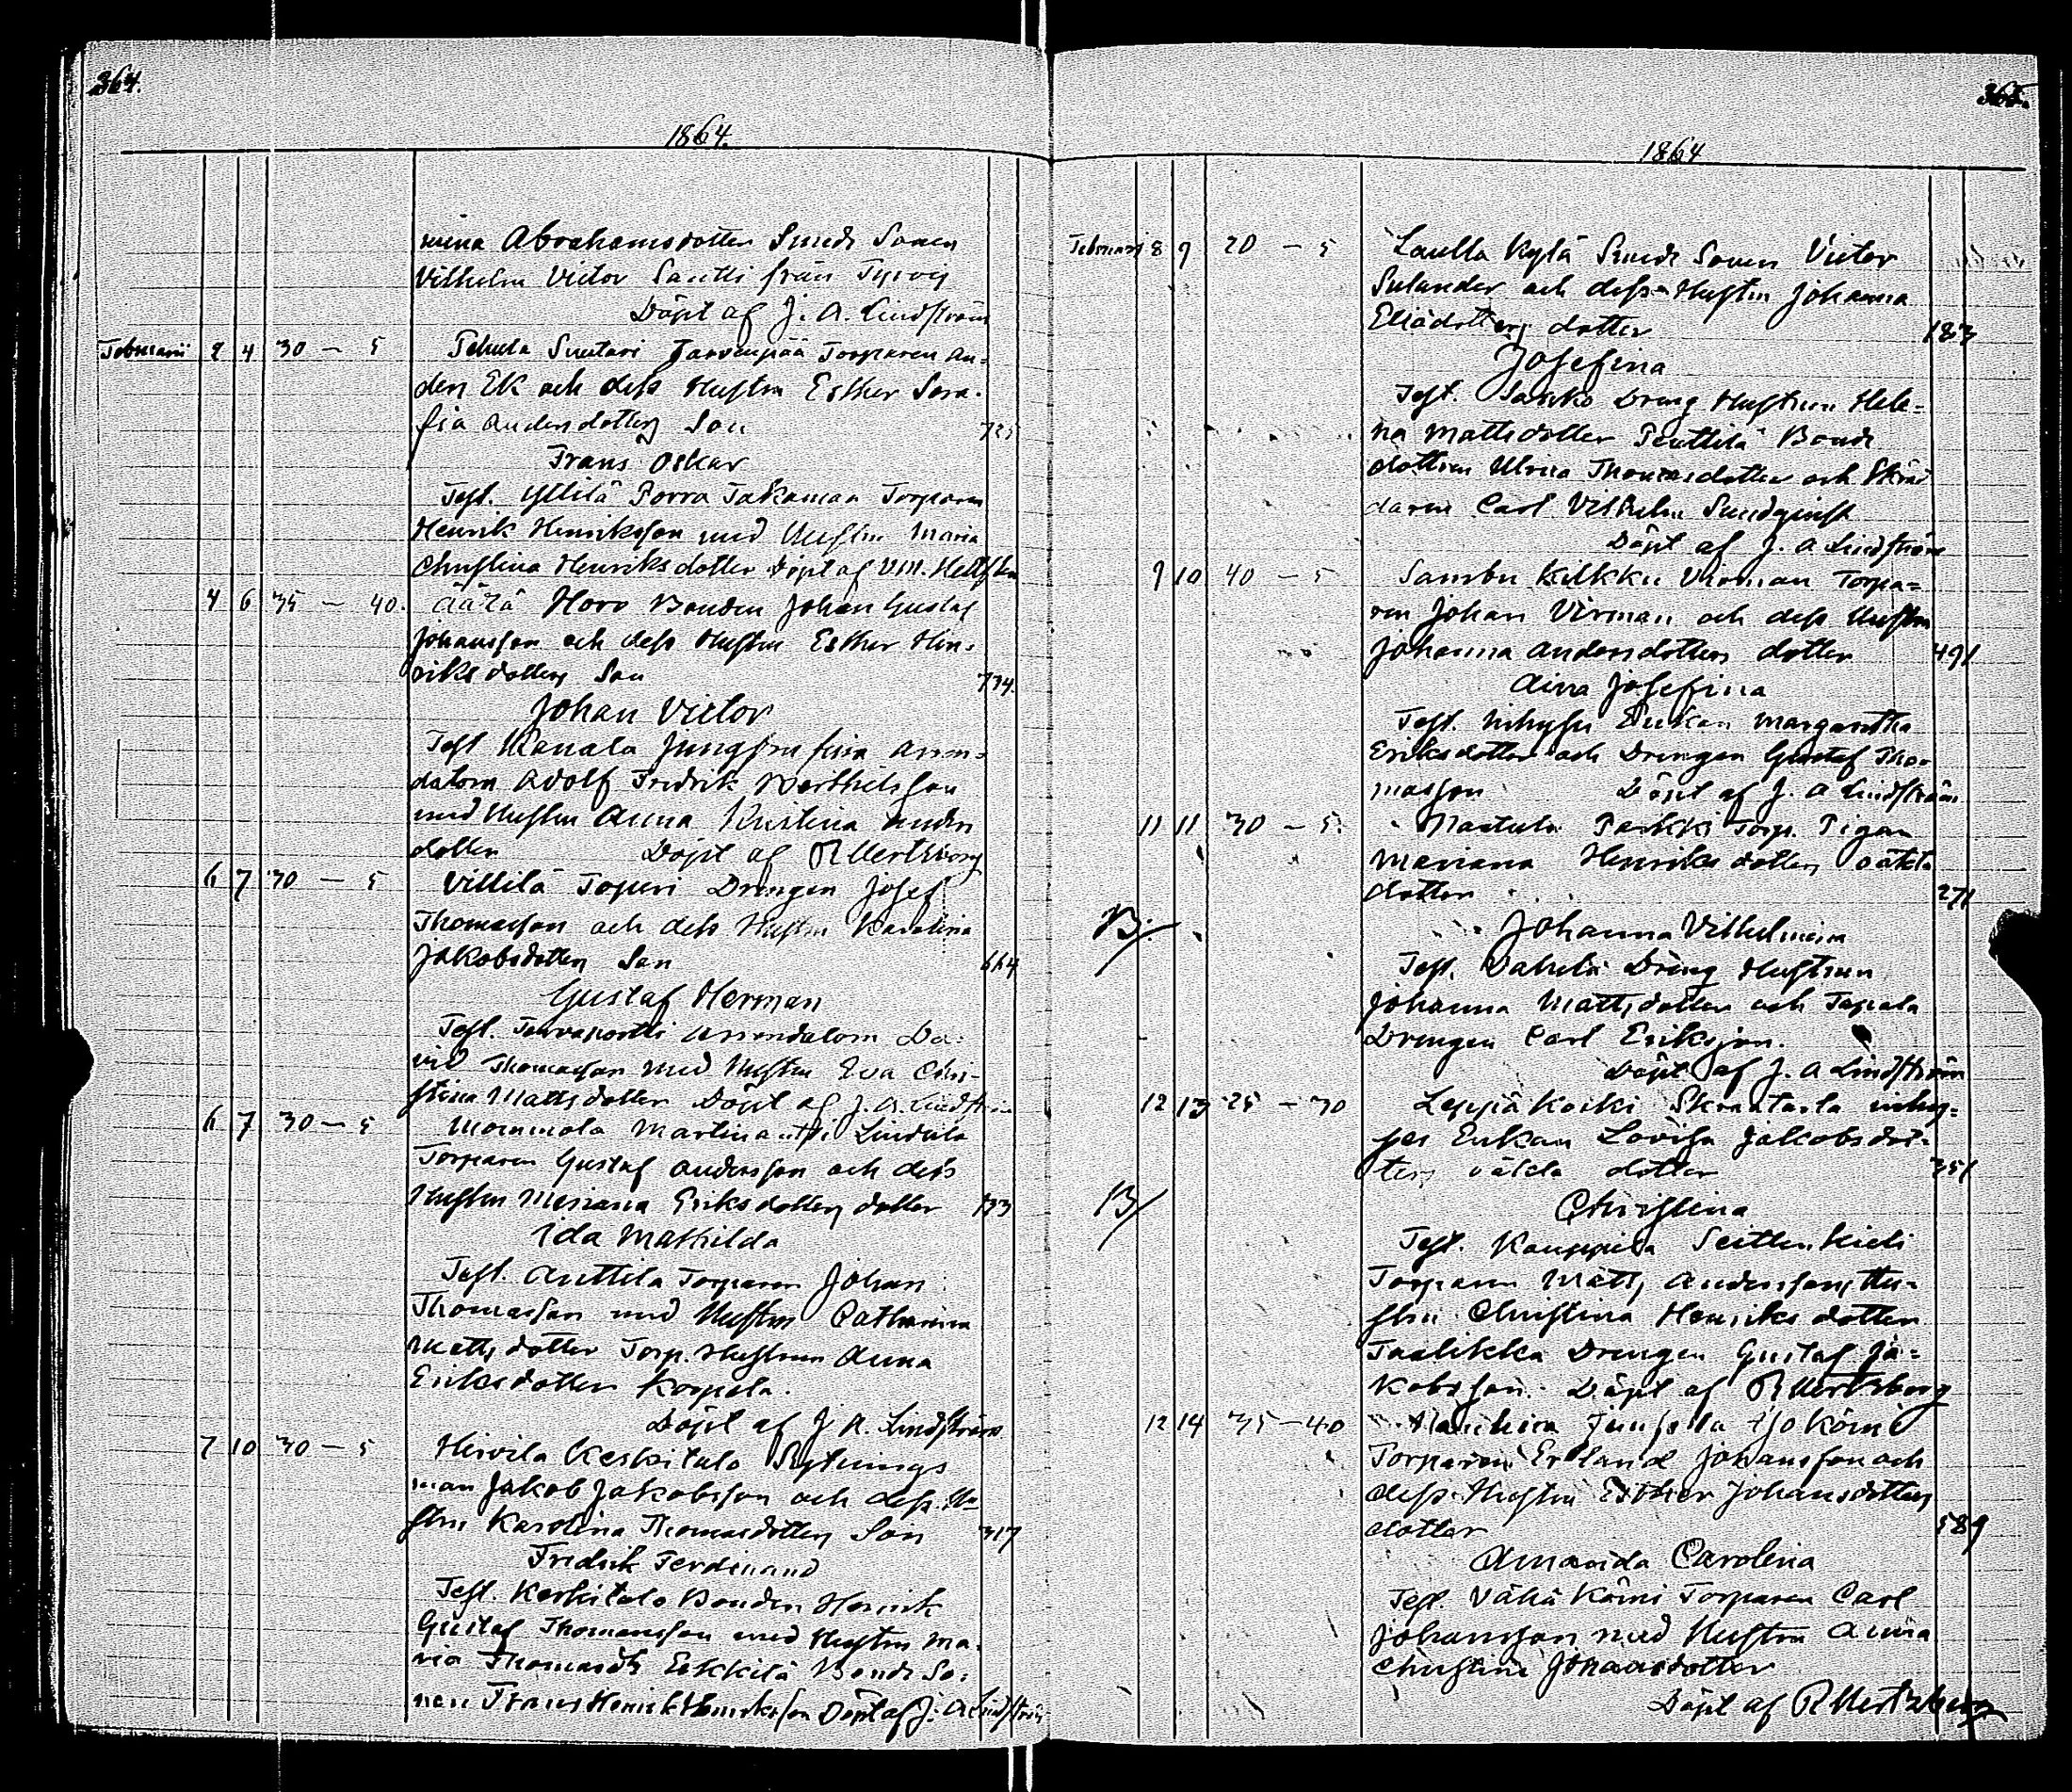 364.
1864.
mina Abrahamsdotter Smeds Sonen
Vilhelm Victor Santti från Tyrvis
Döpt af J. A. Lindström
Februarii 2 4 30 – 5 Suutari Torparen An=
ders Ek och dess Hustru Esther Sera-
fia Andersdotters Son
Frans Oskar
Test. Yllilä Porra Takamaa Torparen
Henrik Henriksson med Hustru Maria
Christina Henriksdotter Döpt af
4 6 35 – 40. Äätä Horo Bonden Johan Gustaf
Johansson och dess Hustru Esther Hin=
riksdotters Son 734.
Johan Victor
Test Jungfru Arren=
datorn Adolf Fredrik Berthelsson
med Hustru Anna Kristina Anders
dotter Döpt af R Mertzberg
6 7 30 – 5 Villilä Drengen Josef
Thomasson och dess Hustru Karolina
Jakobsdotters Son 664
Gustaf Herman
Test. Arrendatorn Da=
vid Thomasson med Hustru Eva Chri-
stina Mattsdotter Döpt af J. A. Lindström
6 7 30 – 5 Mommola
Torparen Gustaf Andersson och dess
Hustru Mariana Eriksdotters dotter
Ida Mathilda
Test. Anttila Torparen Johan
Thomasson med Hustru Catharina
Mattsdotter Torp. Hustrun Anna
Eriksdotter Korpela.
Döpt af J A. Lindström
7 10 30 – 5 Hirvilä Keskitalo Sytnings
man Jakob Jakobsson och dess Hu=
stru Karolina Thomasdotters Son 317
Fredrik Ferdinand
Test. Keskitalo Bonden Henrik
Gustaf Thomasson med Hustru Ma=
ria Eskkilä Bonde So=
nen Frans Henrik Henriksson Döpt af J. A Lindström
365.
1864
Februarii 8 9 20 – 5 Kylä Smeds Sonen Victor
Sulander och dess Hustru Johanna
Eliädotters dotter 183
Josefina
Test. Dreng Hustrun Hele=
na Mattsdotter Penttilä Bonde
dottren Ulrica Thomasdotter och Skräd
daren Carl Vilhelm Sundqvist
Döpt af J. A Lindström
9 10 40 – 5 Sambu Kilkku Virman Torpa=
ren Johan Virman och dess Hustru
Johanna Andersdotters dotter 491
Aina Josefina
Test. Inhyses Enkan Margaretha
Eriksdotter och Drengen Gustaf Tho=
masson Döpt af J. A Lindström
11 11 30 – 5. Parkki Torp. Pigan
Mariana Henriksdotters oäkta
dotter 271
B/ Johanna Vilhelmina
Test. Dreng Hustrun
Johanna Mattsdotter och Tapala
Drengen Carl Eriksson.
Döpt af J. A Lindström
12 13 25 – 30 Leppäkoski inhy=
ses Enkan Lovisa Jakobsdot-
ters oäkta dotter 351
B/ Christina
Test. Kauppila
Torparen Matts Anderssons Hu=
stru Christina Henriksdotter
Drengen Gustaf Ja=
kobsson. Döpt af R Mertzberg
12 14 35 – 40
Torparen Erland Johansson och
dess Hustru Esther Johansdotters
dotter 589
Amanda Carolina
Test. Vähä Torparen Carl
Johansson med Hustru Anna
Christina Johansdotter
Döpt af R Mertzberg